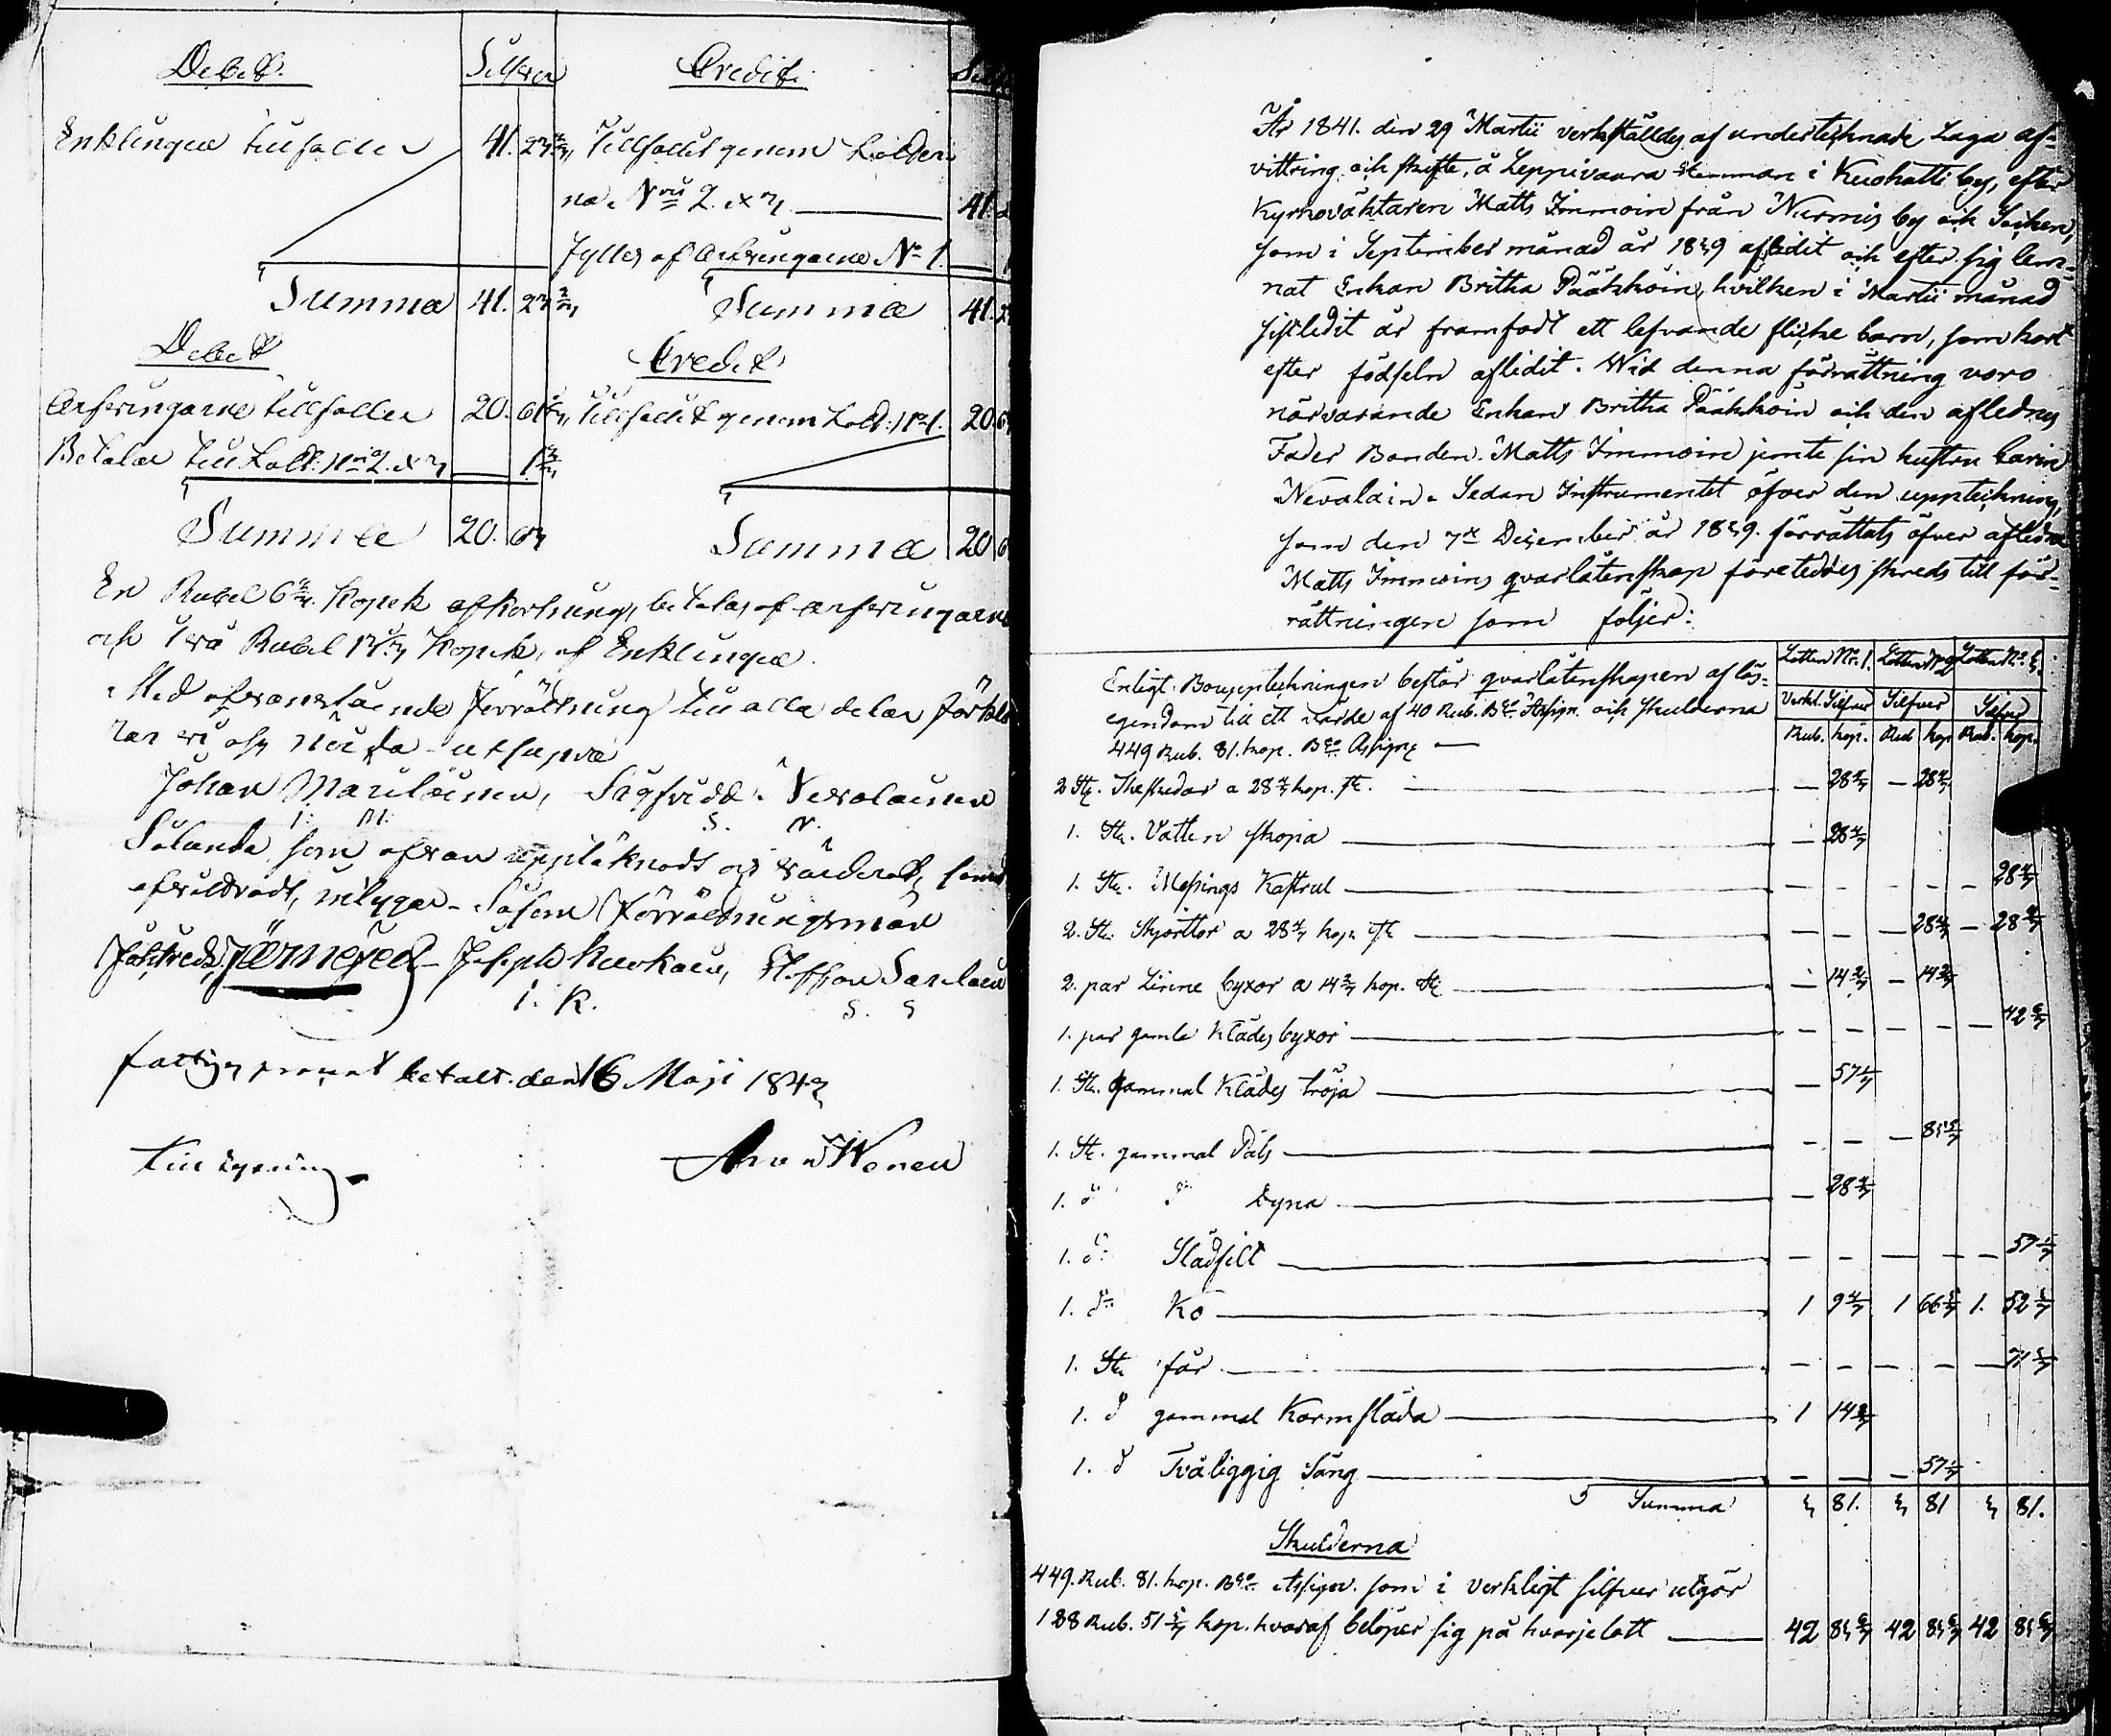 Debet. Silfver Credit. Silf
Enklingen tillfaller 41. 23 Tillfallit genom Lotter-
na Nris 2. & 3 41.
Fylles af Arfvingarne No 1.
Summa 41. 23 Summa 41. 2
Debet Credit
Arfvingarne tillfaller 20. 61 Tillfallit genom Lott: No 1. 20. 6
Betalar till Lott: No 2. & 3 1
Summa 20. 63 Summa 20 6
En Rubel 6 Kopek afkortning, betalas af arfvingarne
och Två Rubel Kopek, af Enklingen.
Med ofvanstående förrättning till alla delar förkla
rar vi oss nöjda ut supra
Johan Mariloinen, Sigfridd Nevalainen
I: M: S. N.
Sålunda som ofvan upptäknadt och värderadt, samt
afvittradt, intygar. Såsom förrättningsmän
Järnefelt Joseph Kuokain, Steffan Sarelain
I. K. S. S
fattig procent betalt. den 16 Maji 1843
till tygning.
År 1841. den 29 Martii verkställdes af undertecknade Laga af-
vittring och skifte, å Leppivaara Hemman i Kuohatti by, efter
Kyrkoväktaren Matts Immoin från Nurmis by och Socken,
som i September månad år 1839 aflidit och efter sig lem-
nat Enkan Britha Pääkköin, hvilken i Martii månad
sistledit år framfödt ett lefvande flicke barn, som kort
efter födseln aflidit. Wid denna förrättning voro
närvarande Enkan Britha Pääkköin och den aflednes
Fader Bonden Matts Immoin jemte sin hustru Carin
Nevalain. Sedan Instrumentet öfver den uppteckning,
som den 7de December år 1839. förrättats öfver aflidne
Matts Immoins qvarlåtenskap företeddes skreds till för-
rättningen som följer:
Lotten No. 1. Lotten No 2 Lotten No. 3.
Enligt Bouppteckningen består qvarlåtenskapen af lös-
egendom till ett värde af 40 Rub. Bco Assign. och skulderna Verkl. Silfver Silfver Silfver
449 Rub. 81. kop. Bco Assigne — Rub. kop. Rub kop Rub. kop.
2 St. Theskedar a 28 4/7 kop. St. — 28 4/7 — 28 4/7
1. St. Vatten skopa — 28 4/7
1. St. Messings Kastrul — — — — — 28 4/7
2. St. Skjortor a 28 4/7 kop. St — — — 28 4/7 — 28 4/7
2. par Linne byxor a 14 2/7 kop. St — 14 2/7 — 14 2/7
1. par gamla Klädes byxor — — — — — 42 6/7
1. St. gammal Klädes tröja — 57 1/7
1. St. gammal Päls — — — 85 5/7
1. do do Dyna — 28 4/7
1. do Slädfilt — — — — — 57 1/7
1. do Ko 1 9 4/7 1 66 5/7 1. 52 3/7
1. St får — — — — — 71 3/7
1. do gammal Karmsläda 1 14 2/7
1. do Tvåliggig Säng — — — 57 1/7
Summa 3 81. 3 81 3 81.
Skulderna
449. Rub. 81. kop. Bco Assign. som i verkligt silfver utgör
128 Rub. 51 3/7 kop. hvaraf belöper sig på hvarje lott — 42 83 6/7 42 83 6/7 42 83 6/7